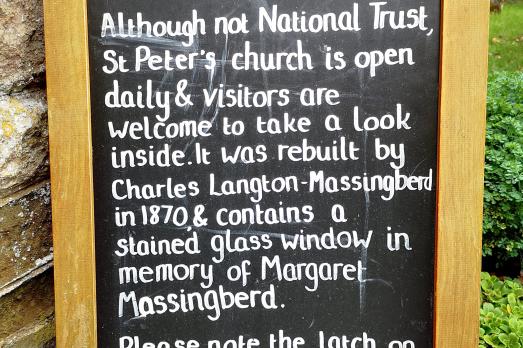 Although not National Trust,
St Peter's church is open
daily & visitors are
welcome to take a look
inside. It was rebuilt by
Charles Langton-Massingberd
in 1870, & contains a
stained glass window in
memory of Margaret
Massingberd.
Please note the latch on